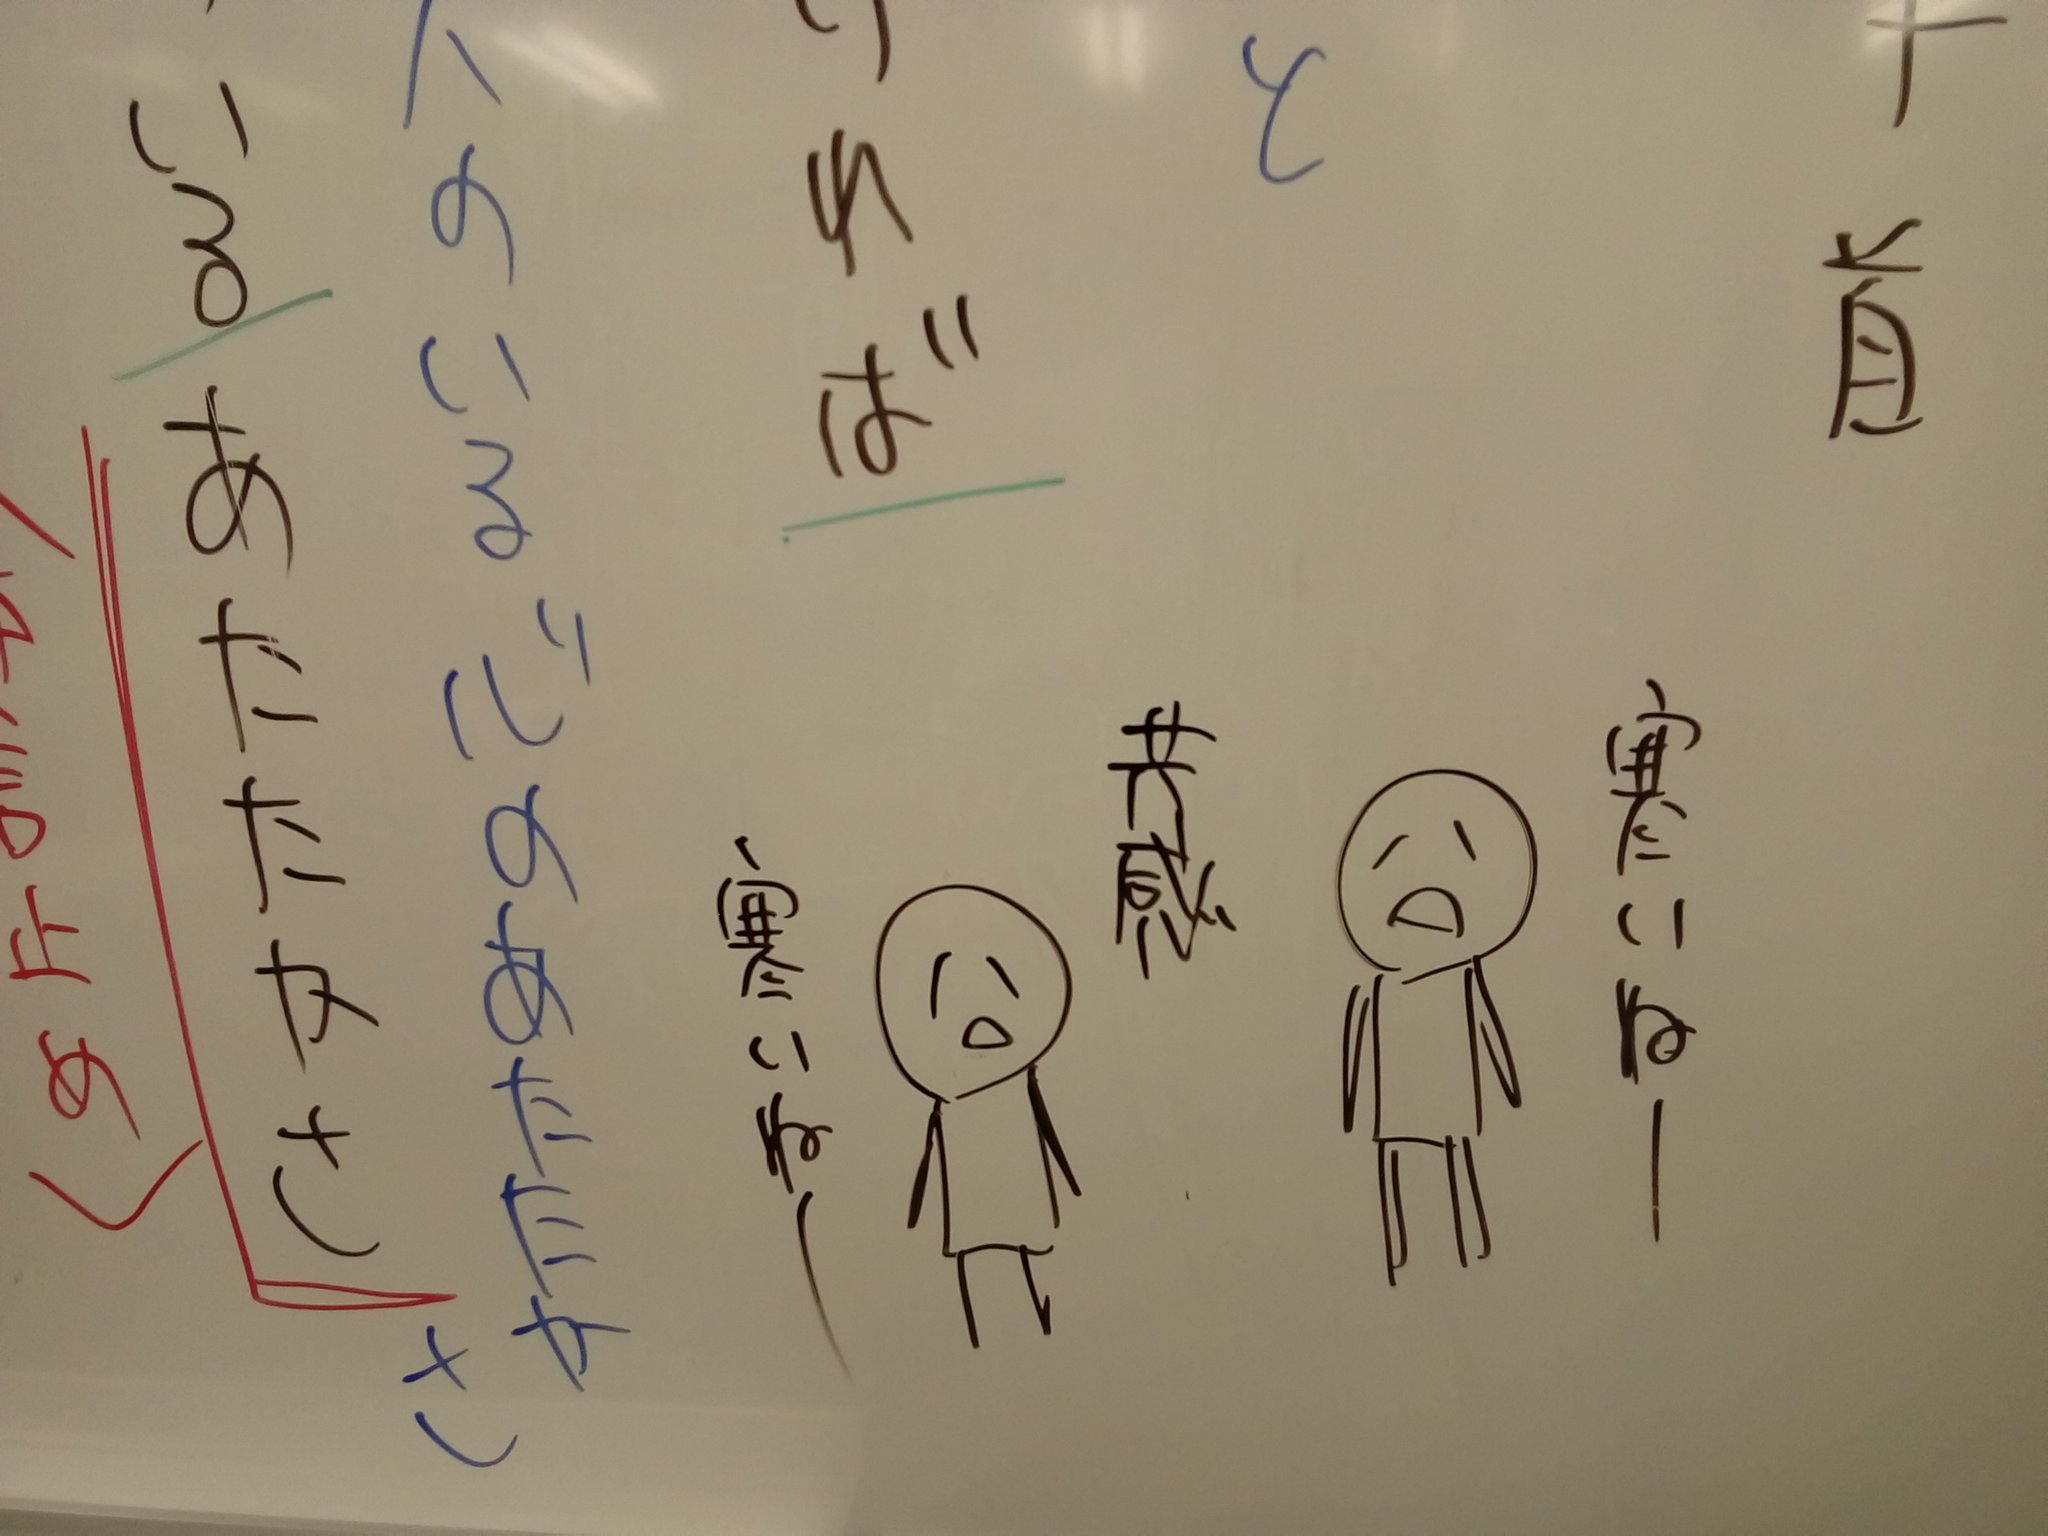 十首
寒いねー
と
共感
ければ
寒いねー
人のいる心のあたたかさ
いるあたたかさ
体言止め